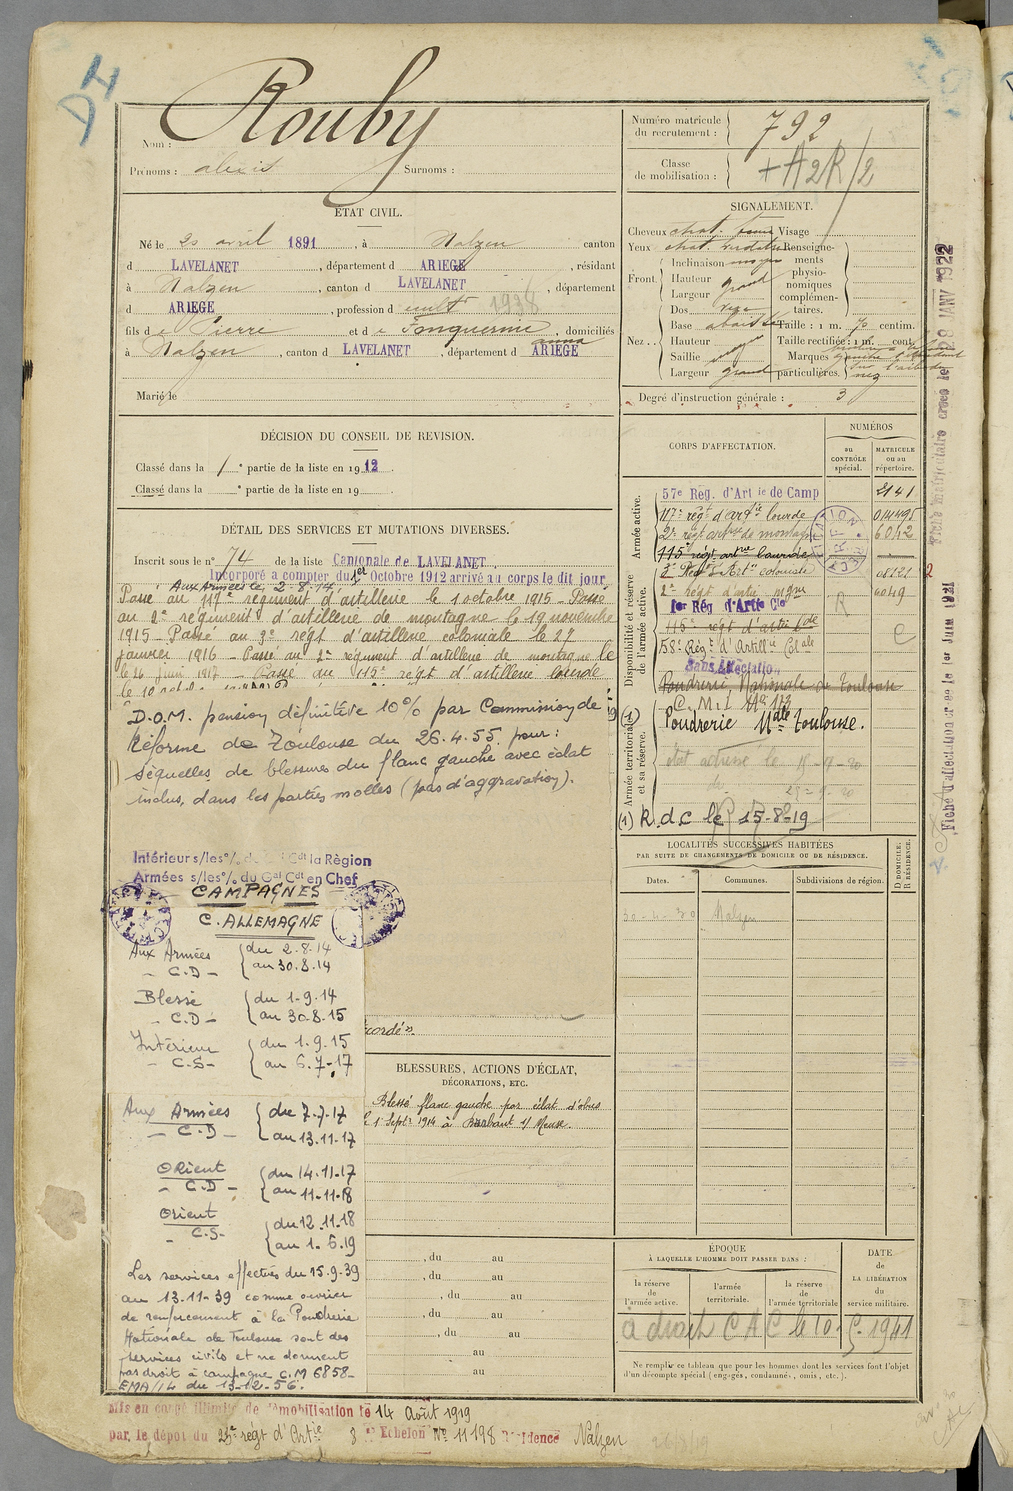 DI
Nom : Rouby
Prénoms : alexis Surnoms :
Numéro matricule du recrutement : 792
Classe de mobilisation : + A2R/2
ÉTAT CIVIL.
Né le 20 avril 1891, à Nalzen canton
d LAVELANET, département d ARIEGE, résidant
à Nalzen, canton d LAVELANET, département
d ARIEGE, profession de cultr 1938
fils de Pierre et de Fonquernie anna, domiciliés
à Nalzen, canton d LAVELANET, département d ARIEGE
Marié le
SIGNALEMENT.
Cheveux chat. Visage
Yeux chat. Renseigne-
ments
physio-
nomiques
complémen-
taires.
Front
Inclinaison moyen
Hauteur grand
Largeur
Nez
Dos
Base abaissée
Hauteur
Saillie moyen
Largeur grand
Taille : 1 m. 70 centim.
Taille rectifiée : 1 m. cent.
Marques particulières.
nez
Degré d'instruction générale : 3
DÉCISION DU CONSEIL DE REVISION.
Classé dans la 1e partie de la liste en 1912.
Classé dans la e partie de la liste en 19
DÉTAIL DES SERVICES ET MUTATIONS DIVERSES.
Inscrit sous le n° 74 de la liste Cantonale de LAVELANET.
Incorporé a compter du 1er Octobre 1912 arrivé au corps le dit jour
Aux Armées le 2-8-14
Passé au 117e régiment d'artillerie le 1 octobre 1915 - Passé
au 2e régiment d'artillerie de montagne le 19 novembre
1915 - Passé au 3e régt d'artillerie coloniale le 27
janvier 1916 - Passé au 2e régiment d'artillerie de montagne le
le 26 juin 1917 - Passé au 115e régt d'artillerie lourde
le 10
D.O.M. pension définitive 10% par Commission de
Réforme de Toulouse du 26.4.55 pour :
séquelles de blessures du flanc gauche avec éclat
inclus, dans les parties molles (pas d'aggravation).
Intérieur s/les% du Gal Cdt la Région
Armées s/les% du Gal Cdt en Chef
CAMPAGNES
C. ALLEMAGNE
Aux Armées { du 2.8.14
- C.D - { au 30.8.14
Blessé { du 1-9.14
- C.D - { au 30.8.15
Intérieur { du 1.9.15
- C.S - { au 6.7-17
Aux Armées { du 7.7.17
- C.D - { au 13.11-17
ORient { du 14.11.17
- C.D - { au 11-11-18
Orient { du 12.11.18
- C.S- { au 1.6.19
Les services effectués du 15.9.39
au 13.11-39 comme ouvrier
de renforcement à la Poudrerie
Nationale de Toulouse sont des
services civils et ne donnent
pas droit à campagne C.M 6858-
EMA/14 du 13-12-56.
cordés.
BLESSURES, ACTIONS D'ÉCLAT,
DÉCORATIONS, ETC.
Blessé flanc gauche par éclat d'obus
le 1 Septe 1914 à Brabant s/ Meuse.
, du au
, du au
, du au
, du au
, du au
au
au
CORPS D'AFFECTATION.
NUMÉROS
au CONTRÔLE spécial.
MATRICULE ou au répertoire.
Armée active.
57e Rég. d'Artie de Camp 2141
117e régt d'artie lourde 014495
2e régt artrie de montagne 6012
115e régt artrie lourde
Disponibilité et réserve de l'armée active.
3e Régt d'Artie coloniale 08121 2
2e régt d'artie mgne 4049
1er Rég d'Artie Cle
R
116e régt d'artie lde
58e Régt d'Artille Colale
Sans affectation
Poudrerie Nationale de Toulouse
Armée territoriale et sa réserve.
C. M. I. 173
(1) Poudrerie Nale Toulouse.
état adressé le
(1) R.d.C le 15-8-19
LOCALITÉS SUCCESSIVES HABITÉES
PAR SUITE DE CHANGEMENTS DE DOMICILE OU DE RÉSIDENCE.
Dates. Communes. Subdivisions de région. D DOMICILE. R RÉSIDENCE.
30-4-30 Nalzen
ÉPOQUE
À LAQUELLE L'HOMME DOIT PASSER DANS :
la réserve de l'armée active. l'armée territoriale. la réserve de l'armée territoriale
DATE de LA LIBÉRATION du service militaire.
a droit CAC le 10. 5. 1941
Ne remplir ce tableau que pour les hommes dont les services font l'objet
d'un décompte spécial (engagés, condamnés, omis, etc.).
Mis en congé illimité de démobilisation le 14 Août 1919
par, le dépôt du 25e régt d'Artie 3 e Echelon No 11198 Résidence Nalzen
Fiche matriculaire créée le 28 JANV 1922
Fiche d'affectation créée le 1er Juin 1921